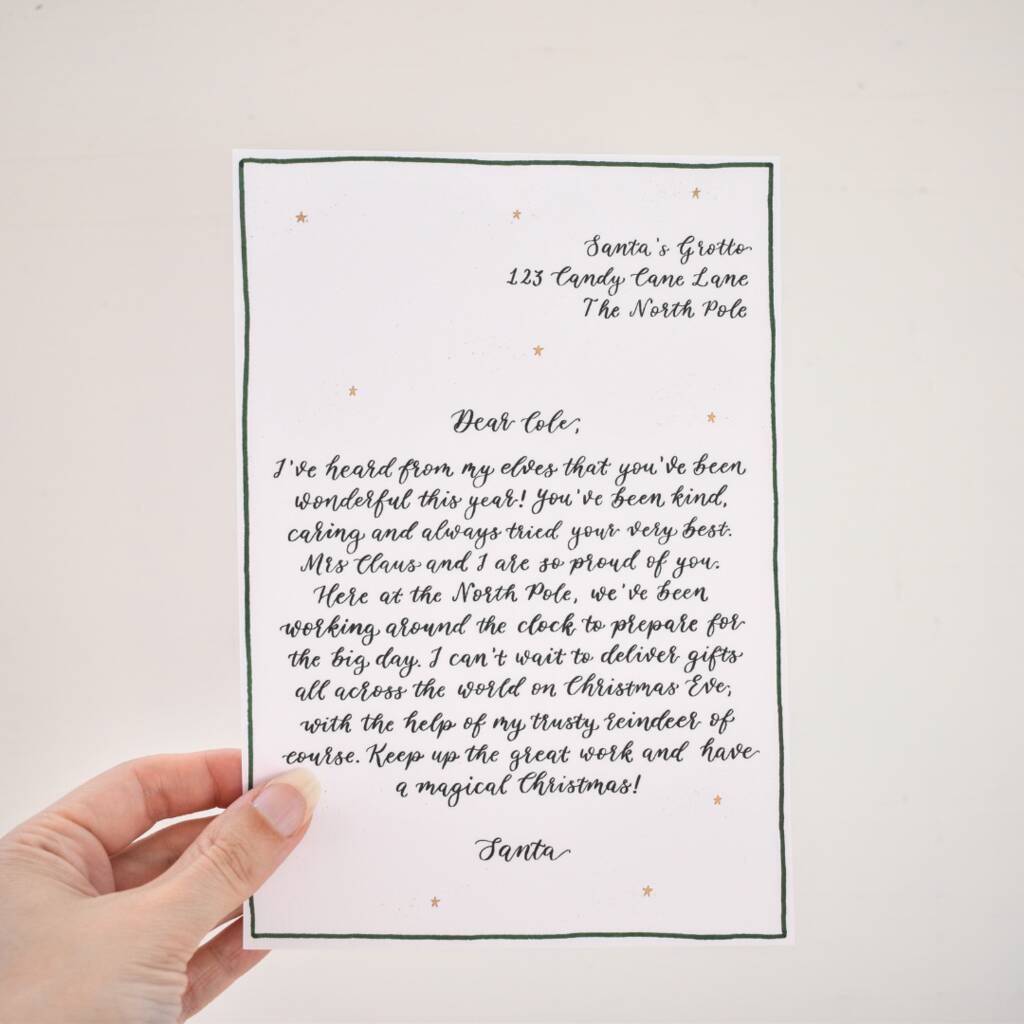 Santa's Grotto
123 Candy Cane Lane
The North Pole
Dear Cole,
I've heard from my elves that you've been
wonderful this year! You've been kind,
caring and always tried your very best.
Mrs Claus and I are so proud of you.
Here at the North Pole, we've been
working around the clock to prepare for
the big day. I can't wait to deliver gifts
all across the world on Christmas Eve,
with the help of my trusty reindeer of
course. Keep up the great work and have
a magical Christmas!
Santa